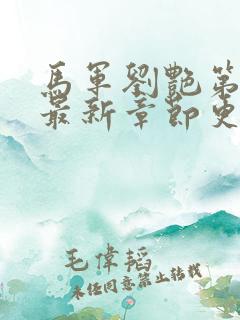 馬軍劉艷第
最新章節史
毛偉韜
未經同意禁止轉載